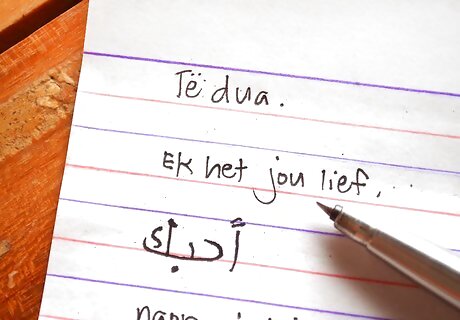 Të dua.
Ek het jou lief.
أحبك